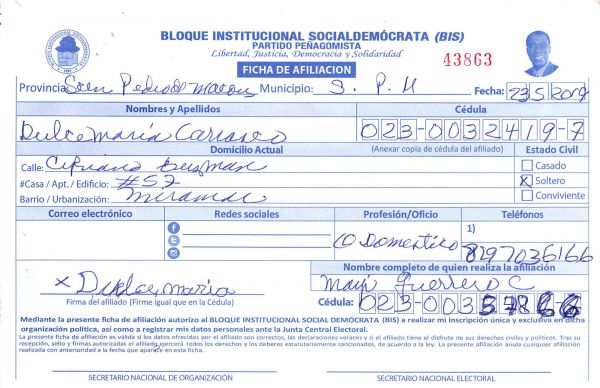 BLOQUE INSTITUCIONAL SOCIALDEMÓCRATA (BIS)
PARTIDO PEÑAGOMISTA
Libertad, Justicia, Democracia y Solidaridad
43863
FICHA DE AFILIACION
Provincia: San Pedro de Macorís Municipio: S. P. M Fecha: 23 5 2019
Nombres y Apellidos Cédula
Dulce maría Carrasco 023-0032419-7
Domicilio Actual (Anexar copia de cédula del afiliado) Estado Civil
Calle: Cipriano Guzman Casado
#Casa / Apt. / Edificio: #57 X Soltero
Barrio / Urbanización: Miramar Conviviente
Correo electrónico Redes sociales Profesión/Oficio Teléfonos
1)
Q Domestico 8297036166
Nombre completo de quien realiza la afiliación
x Dulce maria Guerrero C
Firma del afiliado (Firme igual que en la Cédula) Cédula: 023-003
Mediante la presente ficha de afiliación autorizo al BLOQUE INSTITUCIONAL SOCIAL DEMÓCRATA (BIS) a realizar mi inscripción única y exclusiva en dicha
organización política, así como a registrar mis datos personales ante la Junta Central Electoral.
La presente ficha de afiliación es válida si los datos ofrecidos por el afiliado son correctos, las declaraciones veraces y si el afiliado tiene el disfrute de sus derechos civiles y políticos. Tras su
recepción, sello y firmas autorizadas el afiliado ejercerá todos los derechos y los deberes estatutariamente sancionados, de acuerdo a la ley. La presente afiliación anula cualquier afiliación
realizada con anterioridad a la fecha que aparece en esta ficha.
SECRETARIO NACIONAL DE ORGANIZACIÓN SECRETARIO NACIONAL ELECTORAL